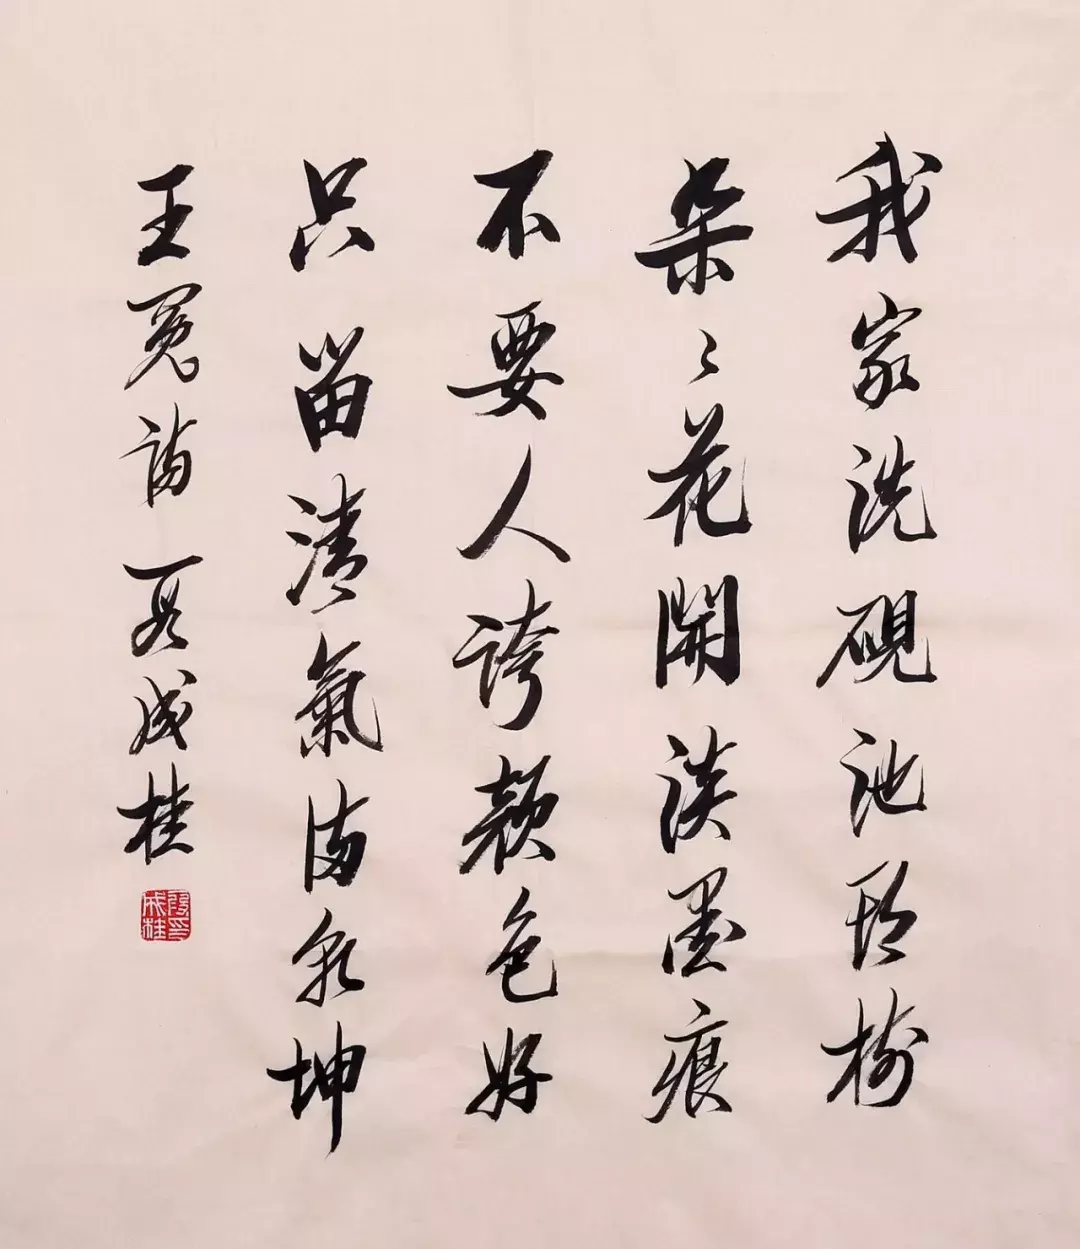 我家洗硯池頭樹
朵々花開淡墨痕
不要人誇顏色好
只留清氣滿乾坤
王冕詩 段成桂
段印成桂